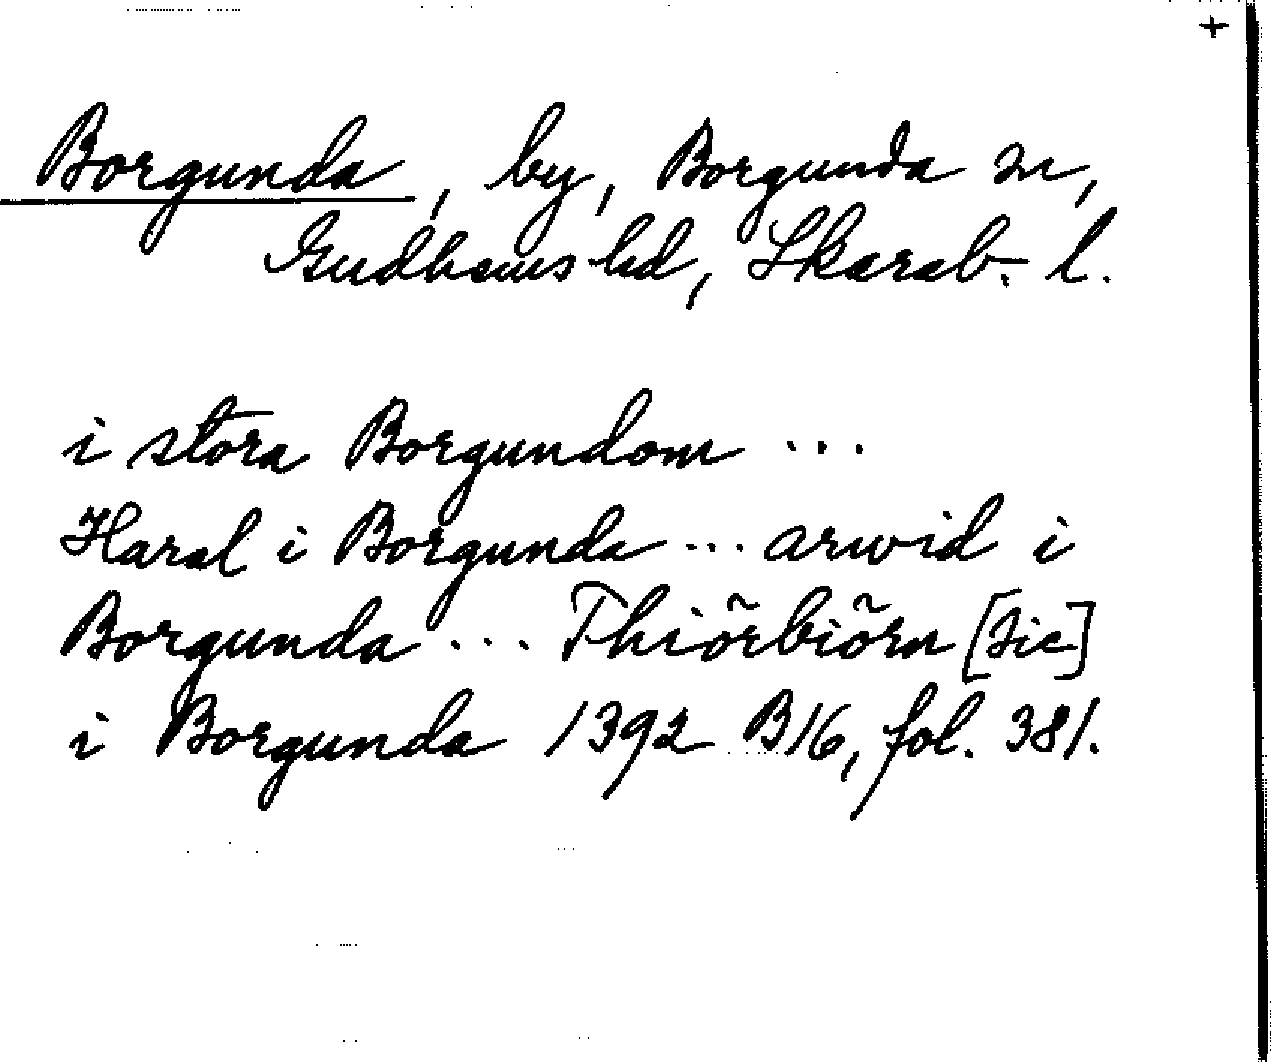 +
Borgunda, by, Borgunda sn,
Gudhems hd, Skarab. l.
i stora Borgundom ...
Haral i Borgunda ... arwid i
Borgunda ... Thiõrbiõrn [Sic]
i Borgunda 1392 B16, fol. 381.